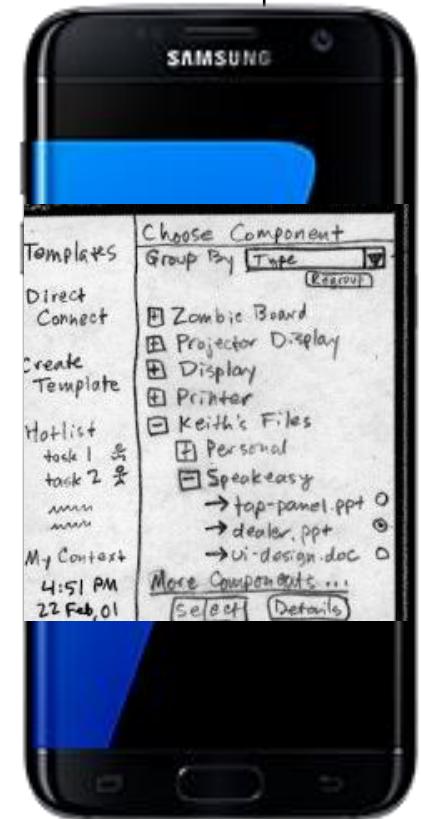 SAMSUNG
Templates
Direct
Connect
Create
Template
Hotlist
task 1
task 2
My Context
4:51 PM
22 Feb, 01
Choose Component
Group By Type
Regroup
Zombie Board
Projector Display
Display
Printer
Keith's Files
Personal
Speakeasy
→ top-panel.ppt
→ dealer.ppt
→ ui-design.doc
More Components...
Select Details